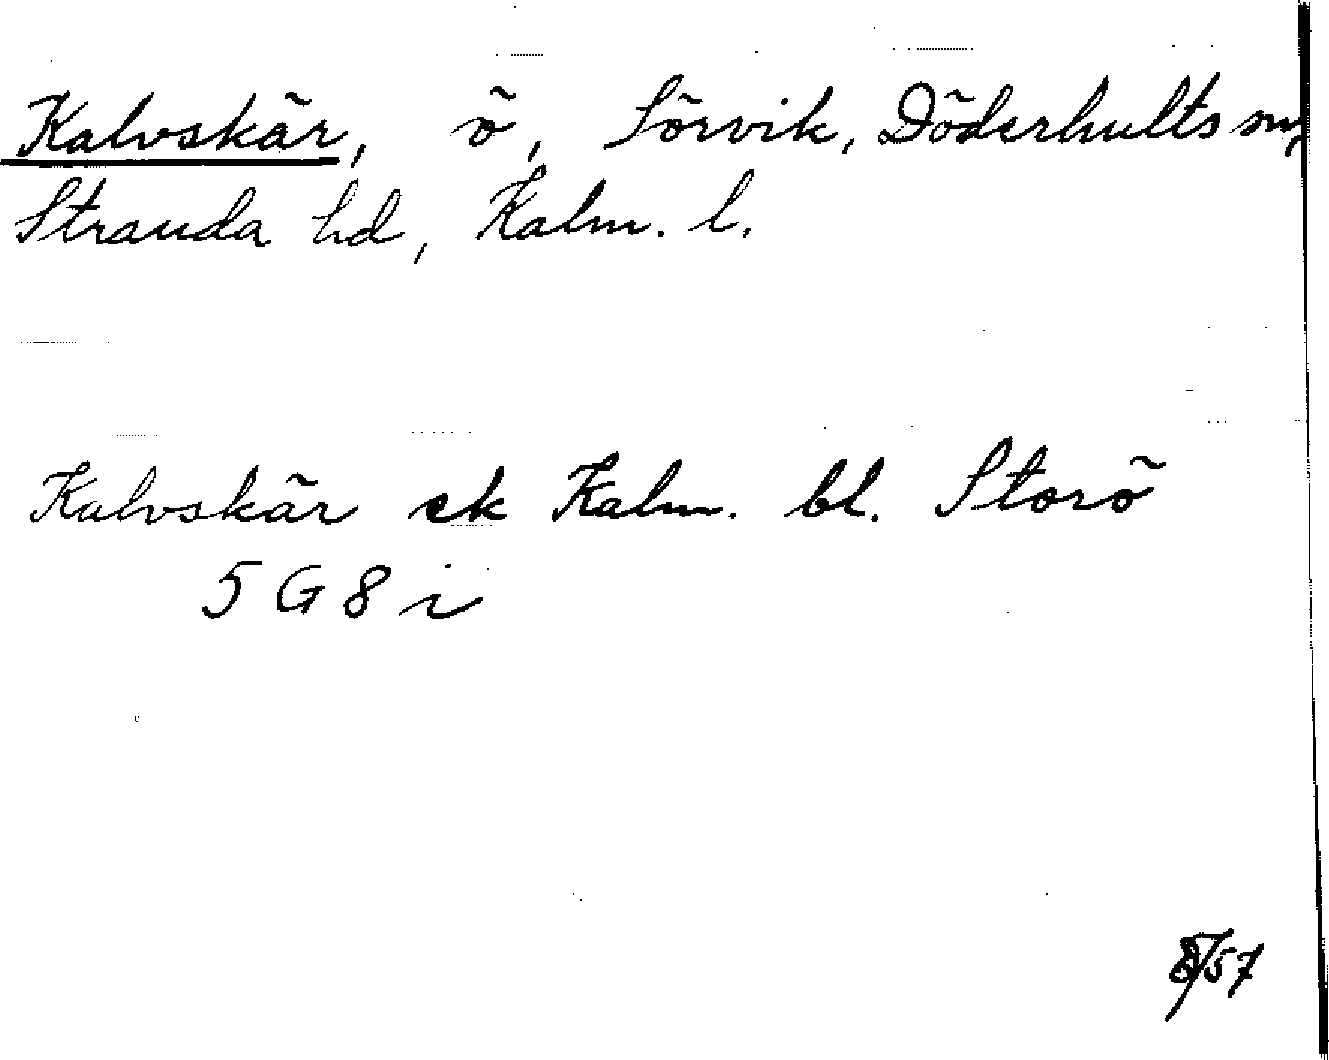 Kalvskär, ö, Sörvik, Döderhults sn,
Stranda hd, Kalm. l.
Kalvskär ek Kalm. bl. Storö
5 G 8 i
/57